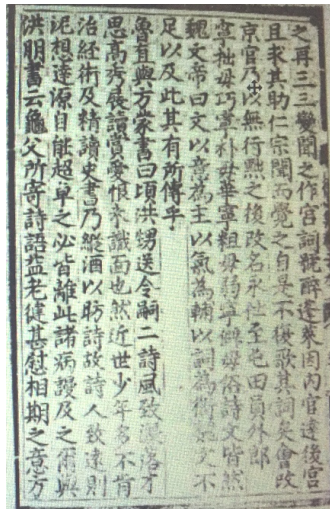 之再三三變聞之作宮詞號醉蓬萊因內官達後宮
且求其助仁宗聞而覺之自是不復歌其詞矣會改
京官乃以無行黜之後改名永仕至屯田員外郎
寧拙毋巧寧朴毋華寧粗毋弱寧僻毋俗詩文皆然
魏文帝曰文以意為主以氣為輔以詞為衛文不
足以及此其有所傳乎
魯直與方蒙書曰頃洪甥送令嗣二詩風致灑落才
思高秀展讀賞愛恨未識面也然近世少年多不肯
治經術及精讀史書乃縱酒以助詩故詩人致遠則
泥想達源自能超卓之必皆離此諸病謾及之爾與
洪朋書云龜父所寄詩語益老健甚慰相期之意方